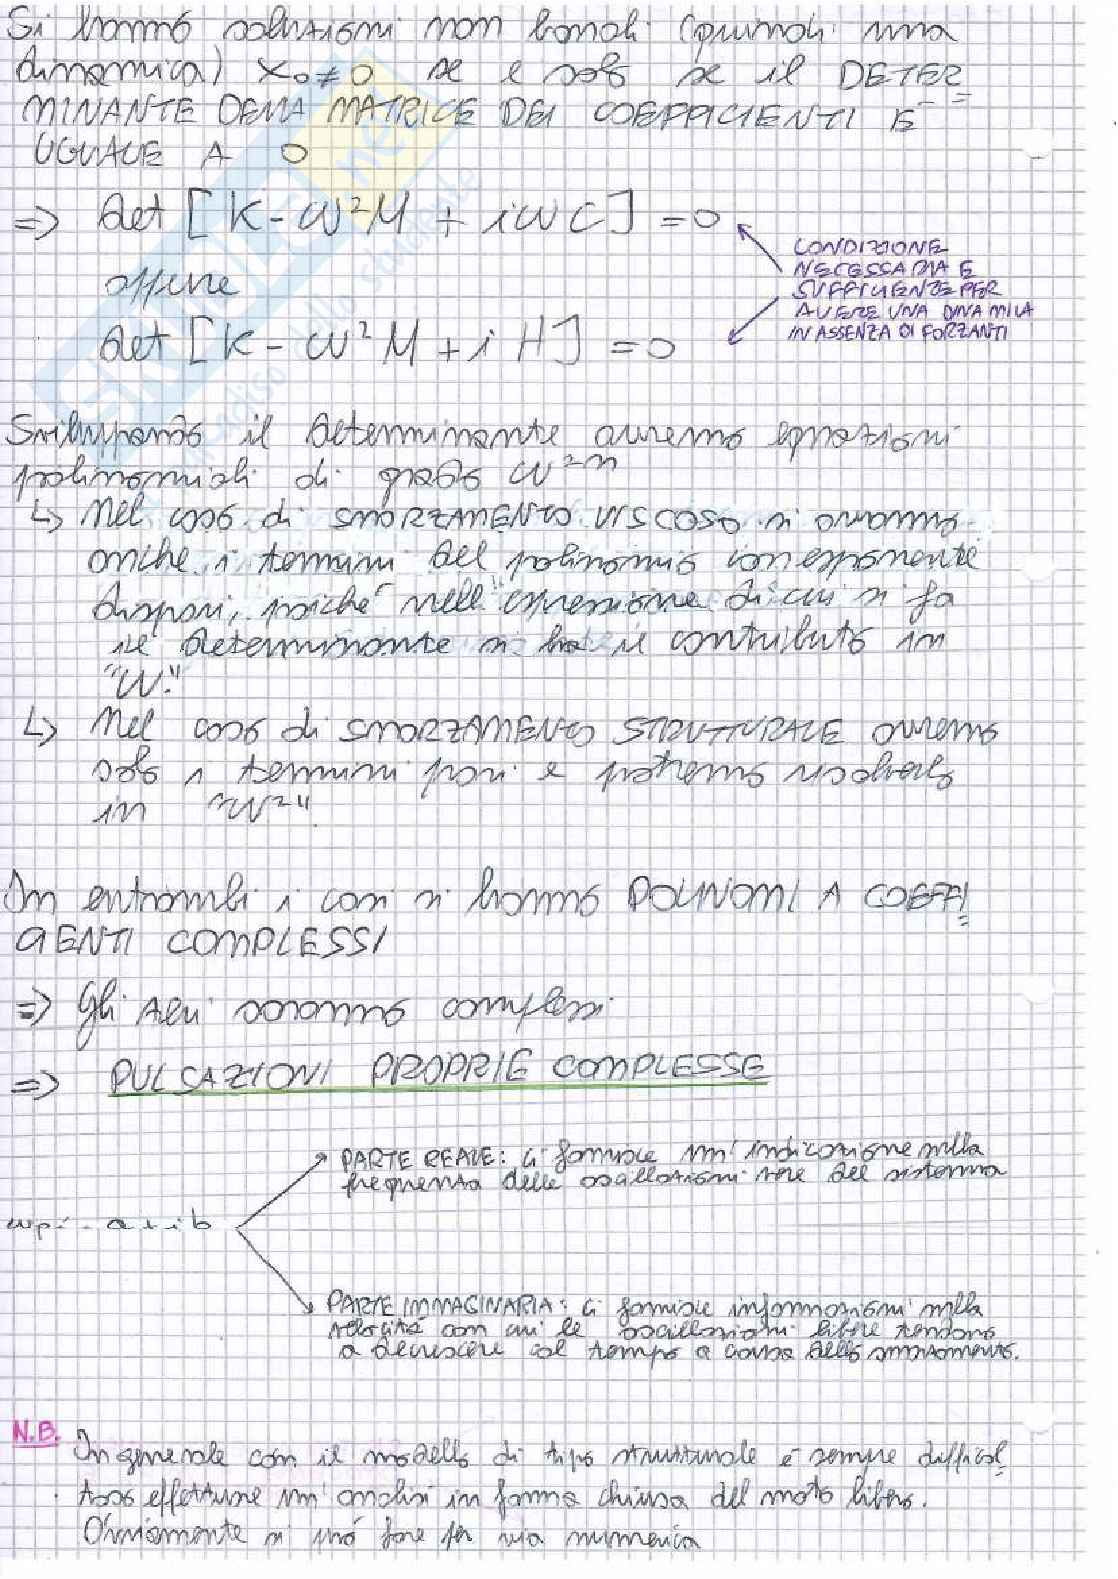 Si hanno soluzioni non banali (quindi una
dinamica) x₀≠0 se e solo se il DETER=
MINANTE DELLA MATRICE DEI COEFFICIENTI È
UGUALE A 0
=> det [K-ω²M + iωC] = 0
oppure
det [K-ω²M + iH] = 0
CONDIZIONE
NECESSARIA E
SUFFICIENTE PER
AVERE UNA DINAMICA
IN ASSENZA DI FORZANTI
Sviluppando il determinante avremo equazioni
polinomiali di grado ω²ⁿ
↳ Nel caso di SMORZAMENTO VISCOSO si avranno
anche i termini del polinomio con esponente
dispari, poiché nell'espressione di cui si fa
il determinante si ha il contributo in
"ω"
↳ Nel caso di SMORZAMENTO STRUTTURALE avremo
solo i termini pari e potremo risolverlo
in "ω²"
In entrambi i casi si hanno POLINOMI A COEFFI=
CIENTI COMPLESSI
=> Gli zeri saranno complessi
=> PULSAZIONI PROPRIE COMPLESSE
PARTE REALE: ci fornisce un'indicazione sulla
frequenza delle oscillazioni vere del sistema
ωpi = a + ib
PARTE IMMAGINARIA: ci fornisce informazioni sulla
velocità con cui le oscillazioni libere tendono
a decrescere col tempo a causa dello smorzamento.
N.B. In generale con il modello di tipo strutturale è sempre difficol=
toso effettuare un'analisi in forma chiusa del moto libero.
Ovviamente si può fare per via numerica
SKUOLA.net
il paradiso dello studente